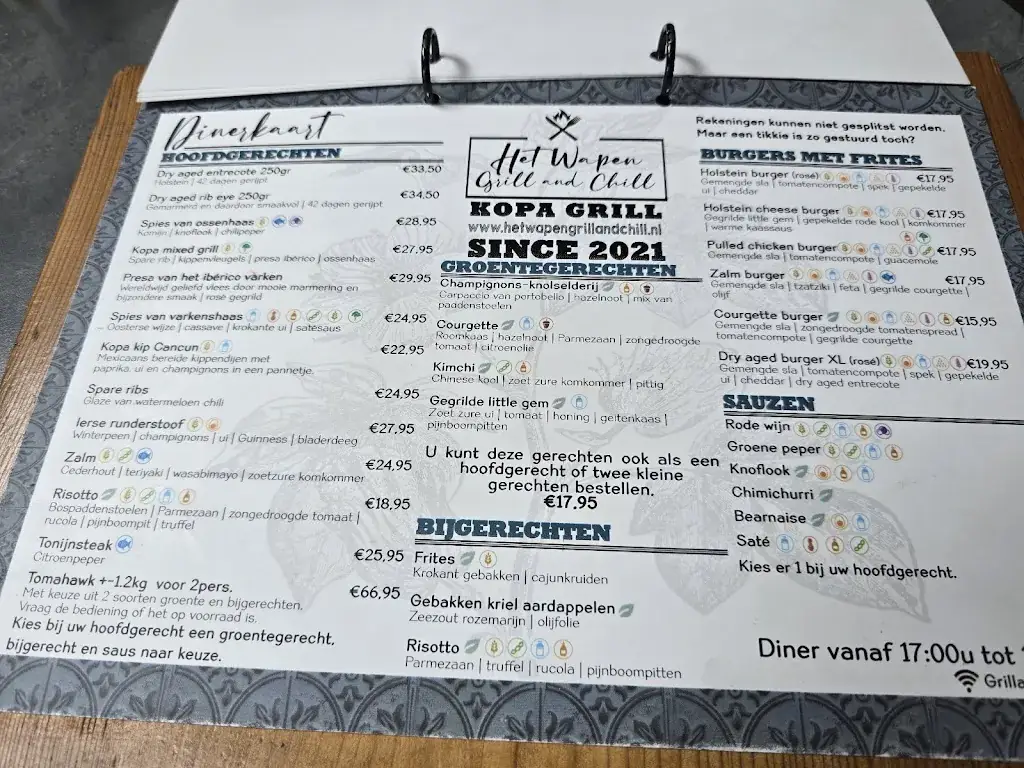 Dinerkaart
HOOFDGERECHTEN
Dry aged entrecote 250gr €33,50
Holstein | 42 dagen gerijpt
Dry aged rib eye 250gr €34,50
Gemarmerd en daardoor smaakvol | 42 dagen gerijpt
Spies van ossenhaas €28,95
Komijn | knoflook | chilipeper
Kopa mixed grill €27,95
Spare rib | kippenvleugels | presa ibérico | ossenhaas
Presa van het ibérico varken €29,95
Wereldwijd geliefd vlees door mooie marmering en
bijzondere smaak | rosé gegrild
Spies van varkenshaas €24,95
Oosterse wijze | cassave | krokante ui | satésaus
Kopa kip Cancun €22,95
Mexicaans bereide kippendijen met
paprika, ui en champignons in een pannetje.
Spare ribs €24,95
Glaze van watermeloen chili
Ierse runderstoof €27,95
Winterpeen | champignons | ui | Guinness | bladerdeeg
Zalm €24,95
Cederhout | teriyaki | wasabimayo | zoetzure komkommer
Risotto €18,95
Bospaddenstoelen | Parmezaan | zongedroogde tomaat |
rucola | pijnboompit | truffel
Tonijnsteak €25,95
Citroenpeper
Tomahawk +-1.2kg voor 2pers. €66,95
Met keuze uit 2 soorten groente en bijgerechten.
Vraag de bediening of het op voorraad is.
Kies bij uw hoofdgerecht een groentegerecht,
bijgerecht en saus naar keuze.
Het Wapen
Grill and Chill
KOPA GRILL
www.hetwapengrillandchill.nl
SINCE 2021
GROENTEGERECHTEN
Champignons-knolselderij
Carpaccio van portobello | hazelnoot | mix van
paddenstoelen
Courgette
Roomkaas | hazelnoot | Parmezaan | zongedroogde
tomaat | citroenolie
Kimchi
Chinese kool | zoet zure komkommer | pittig
Gegrilde little gem
Zoet zure ui | tomaat | honing | geitenkaas |
pijnboompitten
U kunt deze gerechten ook als een
hoofdgerecht of twee kleine
gerechten bestellen.
€17.95
BIJGERECHTEN
Frites
Krokant gebakken | cajunkruiden
Gebakken kriel aardappelen
Zeezout rozemarijn | olijfolie
Risotto
Parmezaan | truffel | rucola | pijnboompitten
Rekeningen kunnen niet gesplitst worden.
Maar een tikkie is zo gestuurd toch?
BURGERS MET FRITES
Holstein burger (rosé) €17.95
Gemengde sla | tomatencompote | spek | gepekelde
ui | cheddar
Holstein cheese burger €17,95
Gegrilde little gem | gepekelde rode kool | komkommer
| warme kaassaus
Pulled chicken burger €17,95
Gemengde sla | tomatencompote | guacemole
Zalm burger €17,95
Gemengde sla | tzatziki | feta | gegrilde courgette |
olijf
Courgette burger €15,95
Gemengde sla | zongedroogde tomatenspread |
tomatencompote | gegrilde courgette
Dry aged burger XL (rosé) €19.95
Gemengde sla | tomatencompote | spek | gepekelde
ui | cheddar | dry aged entrecote
SAUZEN
Rode wijn
Groene peper
Knoflook
Chimichurri
Bearnaise
Saté
Kies er 1 bij uw hoofdgerecht.
Diner vanaf 17:00u tot